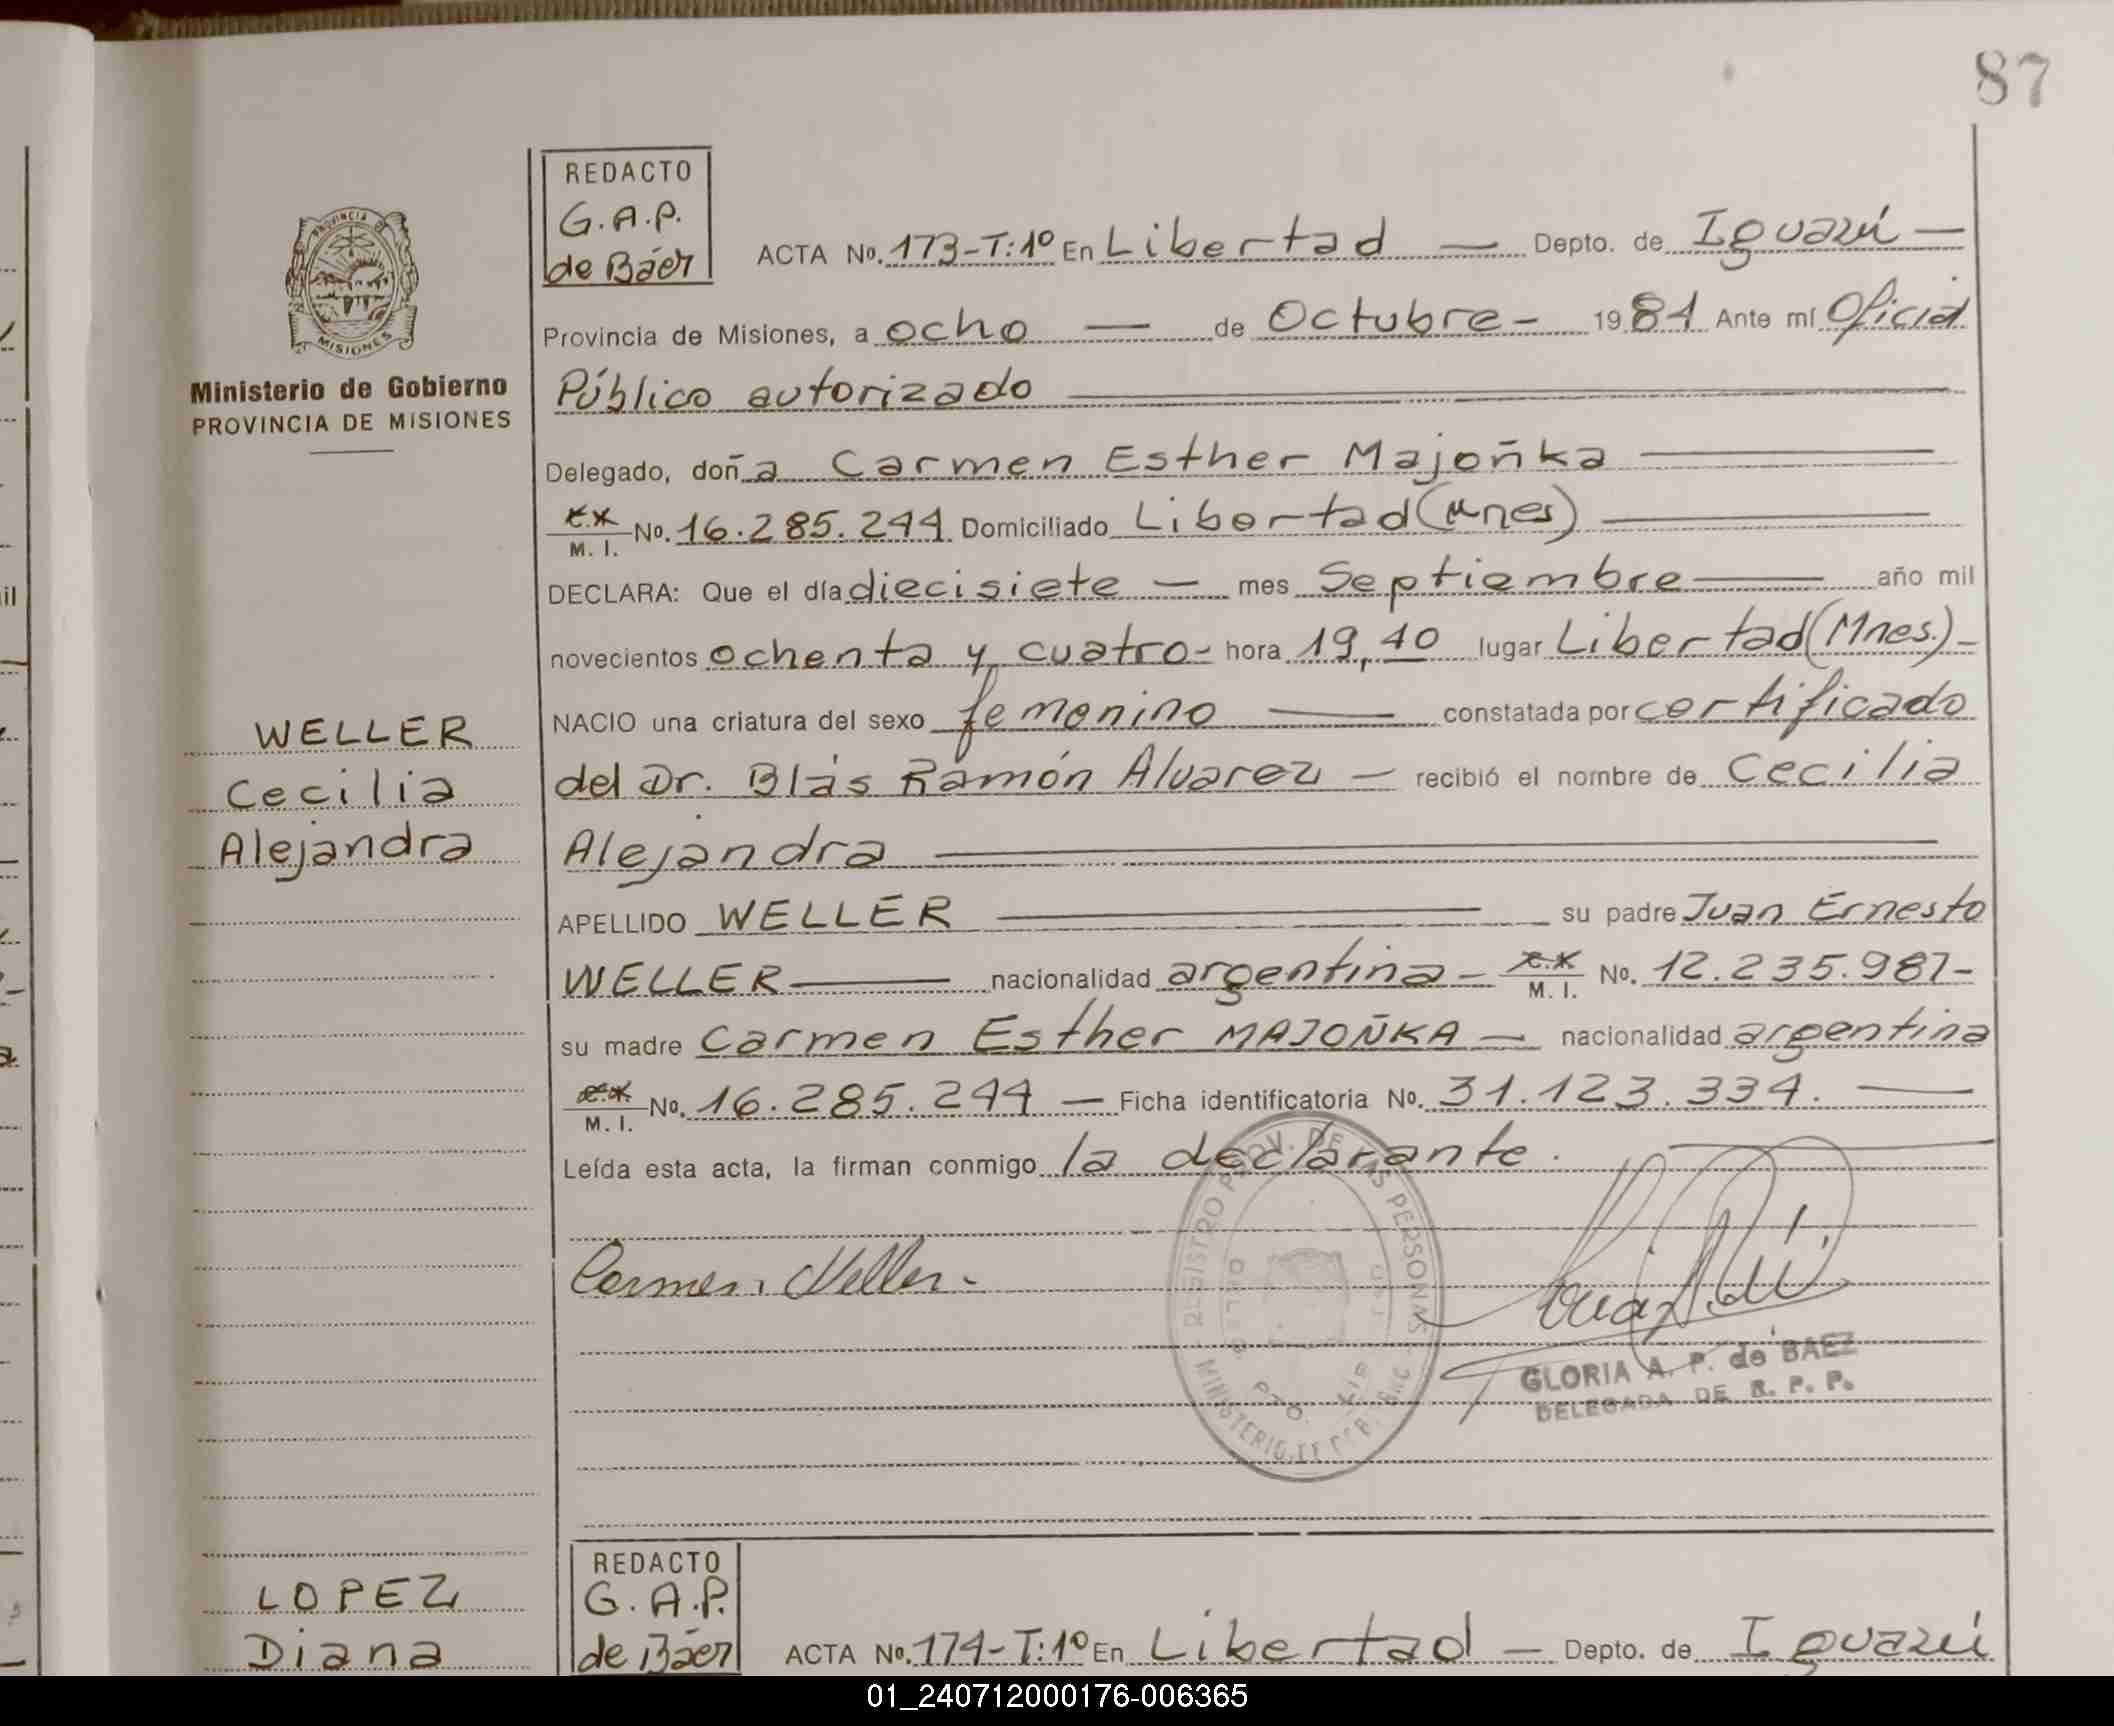 87
REDACTO
G.A.P.
de Báez
ACTA No. 173-T:1º En Libertad — Depto. de Iguazú —
Provincia de Misiones, a ocho — de Octubre - 1984 Ante mí Oficial
Público autorizado
Delegado, doña Carmen Esther Majoñka
M. I. No. 16.285.244 Domiciliado Libertad (Mnes)
DECLARA: Que el día diecisiete — mes Septiembre — año mil
novecientos ochenta y cuatro - hora 19,40 lugar Libertad (Mnes.) -
NACIO una criatura del sexo femenino — constatada por certificado
del Dr. Blás Ramón Alvarez — recibió el nombre de Cecilia
Alejandra
APELLIDO WELLER — su padre Juan Ernesto
WELLER — nacionalidad argentina - M. I. No. 12.235.987-
su madre Carmen Esther MAJOÑKA — nacionalidad argentina
M. I. No. 16.285.244 — Ficha identificatoria No. 31.123.334. —
Leída esta acta, la firman conmigo la declarante.
Carmen Weller.
GLORIA A. P. de BAEZ
DELEGADA DE R. P. P.
PROVINCIA DE
MISIONES
Ministerio de Gobierno
PROVINCIA DE MISIONES
WELLER
Cecilia
Alejandra
REGISTRO PROV. DE LAS PERSONAS
MINISTERIO
LOPEZ
Diana
REDACTO
G.A.P.
de Báez
ACTA No. 174-T:1º En Libertad — Depto. de Iguazú
01_240712000176-006365